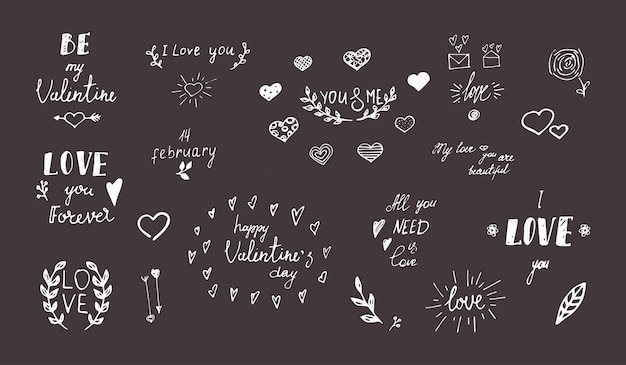 BE
my
Valentine
I love you
YOU & ME
love
14
february
My love you are
beautiful
LOVE
you
Forever
All you
NEED
is
love
I
LOVE
you
happy
Valentine's
day
LO
VE
love